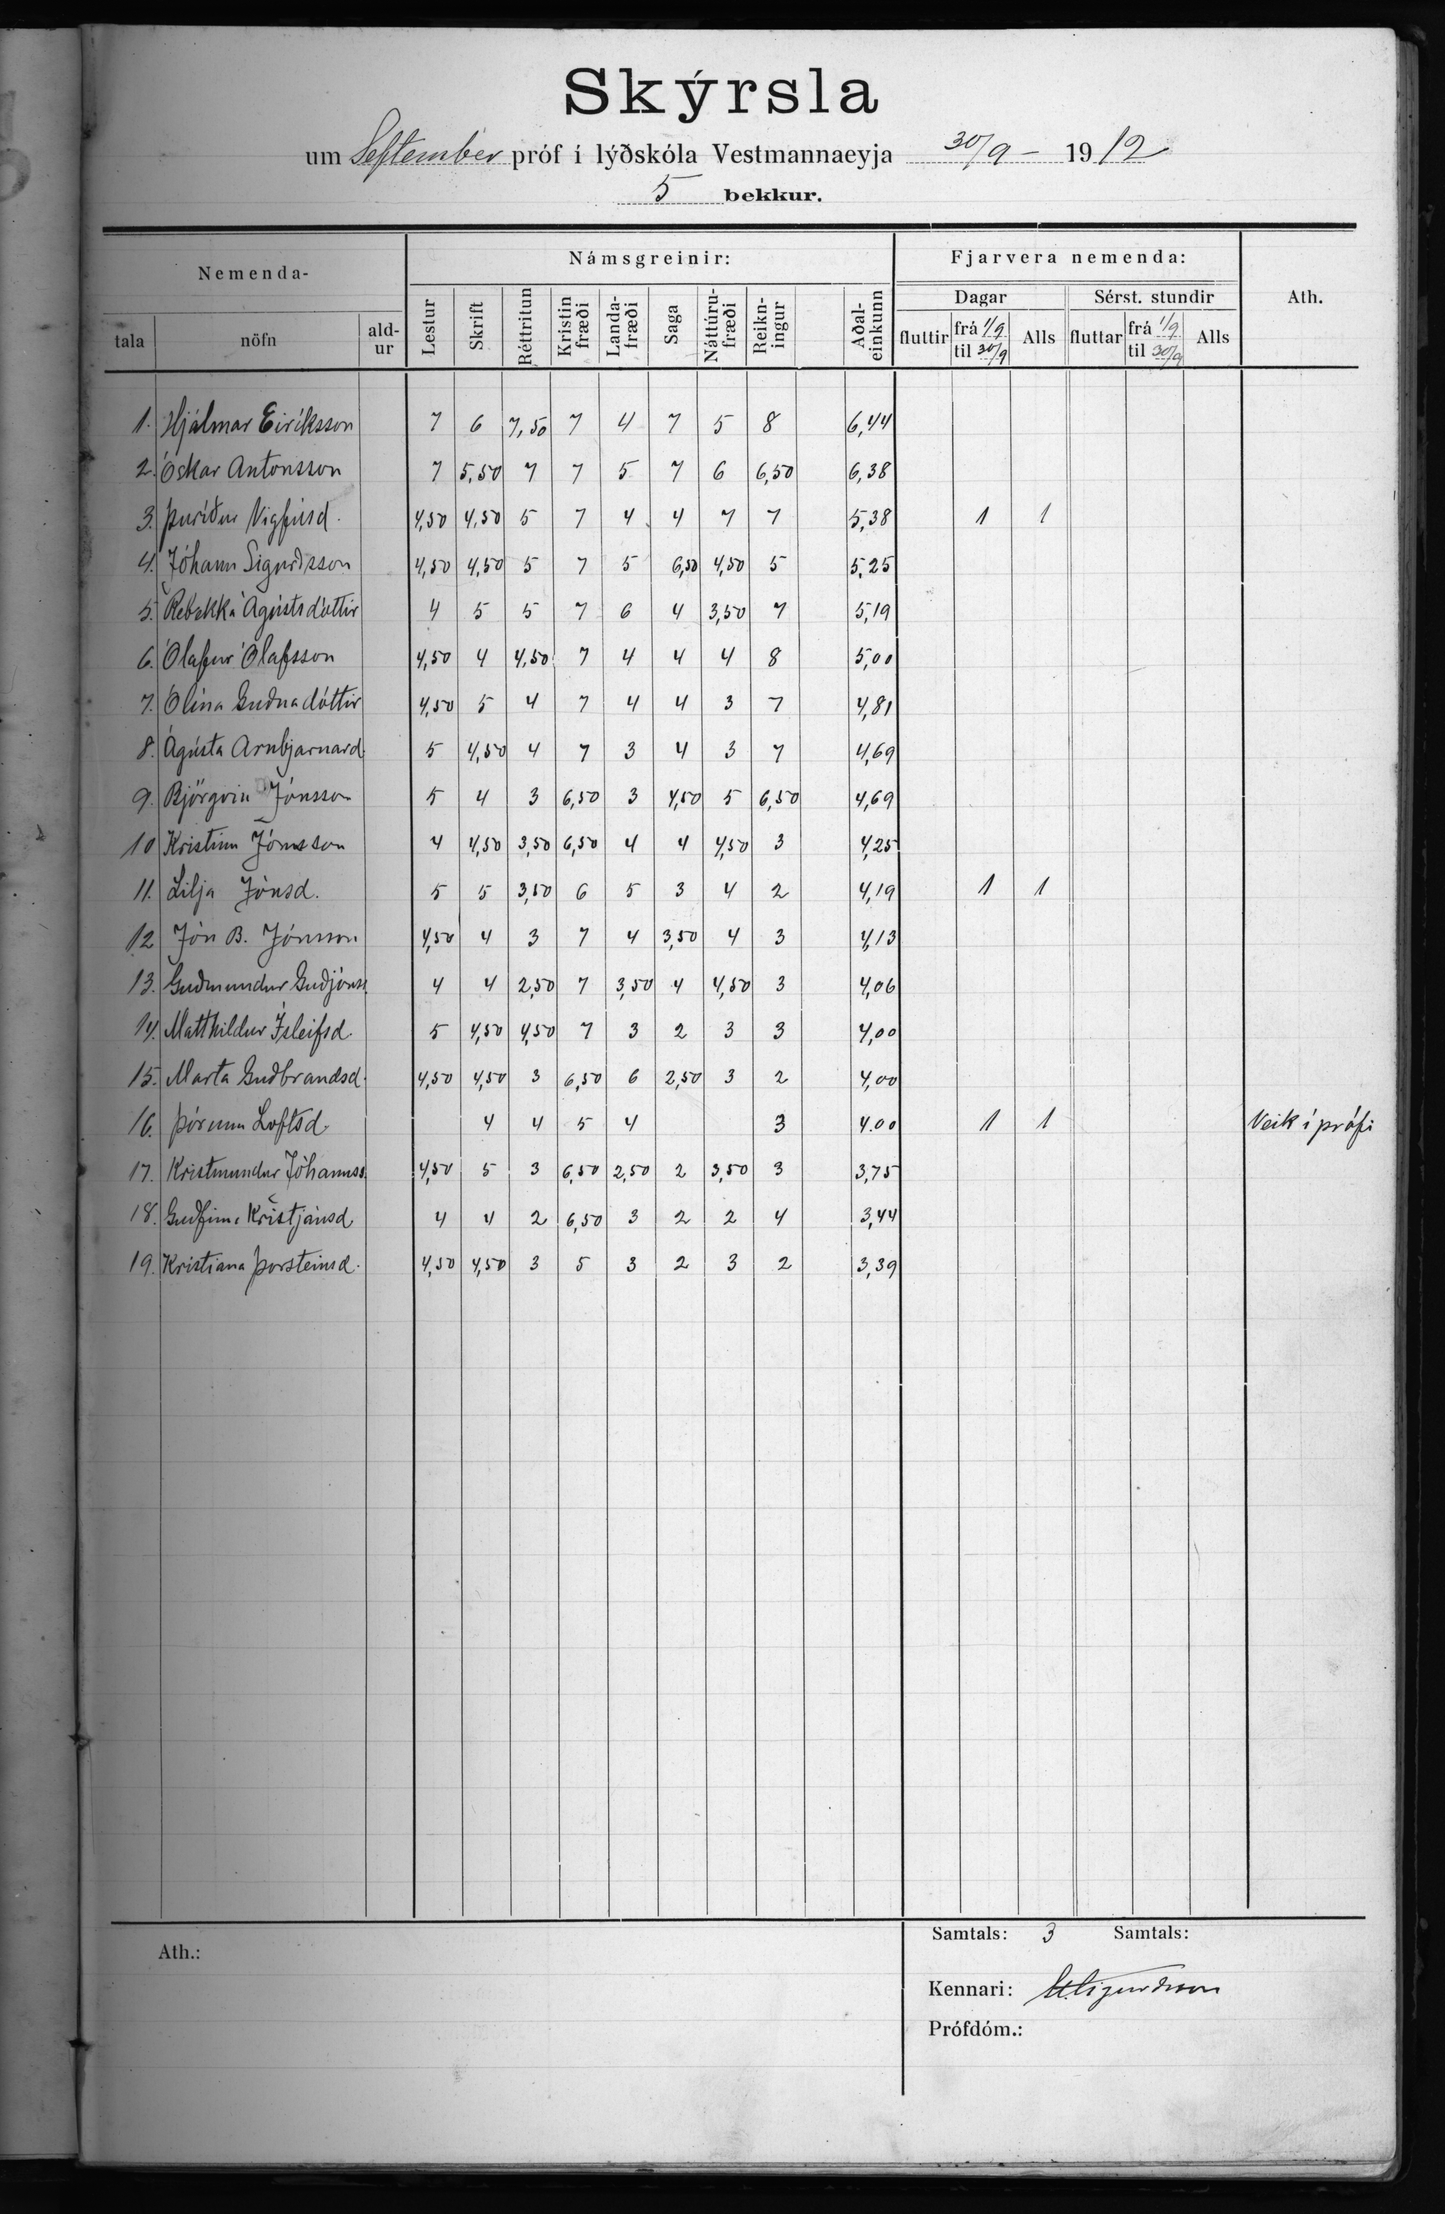 Skýrsla
um September próf í lýðskóla Vestmannaeyja 30/9 - 1912
5 bekkur.
Nemenda- Námsgreinir: Fjarvera nemenda: Ath.
tala nöfn ald-ur Lestur Skrift Réttritun Kristin fræði Landa-fræði Saga Náttúru-fræði Reikn-ingur Aðal-einkunn Dagar Sérst. stundir
fluttir frá 1/9 til 30/9 Alls fluttar frá 1/9 til 30/9 Alls
1. Hjálmar Eiríksson 7 6 7,50 7 4 7 5 8 6,44
2. Óskar Antonsson 7 5,50 7 7 5 7 6 6,50 6,38
3. Þuríður Vigfúsd. 4,50 4,50 5 7 4 4 7 7 5,38 1 1
4. Jóhann Sigurðsson 4,50 4,50 5 7 5 6,50 4,50 5 5,25
5. Rebekka Ágústsdóttir 4 5 5 7 6 4 3,50 7 5,19
6. Ólafur Ólafsson 4,50 4 4,50 7 4 4 4 8 5,00
7. Ólína Guðnadóttir 4,50 5 4 7 4 4 3 7 4,81
8. Ágústa Arnbjarnard. 5 4,50 4 7 3 4 3 7 4,69
9. Björgvin Jónsson 5 4 3 6,50 3 4,50 5 6,50 4,69
10 Kristinn Jónsson 4 4,50 3,50 6,50 4 4 4,50 3 4,25
11. Lilja Jónsd. 5 5 3,50 6 5 3 4 2 4,19 1 1
12 Jón B. Jónsson 4,50 4 3 7 4 3,50 4 3 4,13
13. Guðmundur Guðjónss. 4 4 2,50 7 3,50 4 4,50 3 4,06
14. Matthildur Ísleifsd. 5 4,50 4,50 7 3 2 3 3 4,00
15. Marta Guðbrandsd. 4,50 4,50 3 6,50 6 2,50 3 2 4,00
16. Þórunn Loftsd. 4 4 5 4 3 4.00 1 1 Veik í prófi
17. Kristmundur Jóhannss. 4,50 5 3 6,50 2,50 2 3,50 3 3,75
18. Guðfinna Kristjánsd. 4 4 2 6,50 3 2 2 4 3,44
19. Kristiana Þorsteinsd. 4,50 4,50 3 5 3 2 3 2 3,39
Samtals: 3 Samtals:
Ath.:
Kennari: St. Sigurðsson
Prófdóm.: